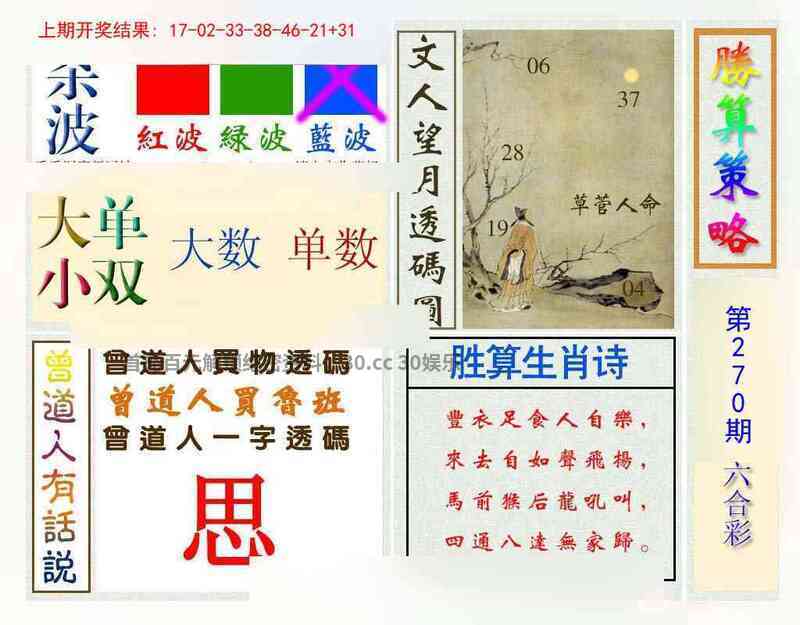 上期开奖结果：17-02-33-38-46-21+31
杀波
紅波 緑波 藍波
大单小双
大数 单数
文人望月透碼圖
06
37
28
草菅人命
19
04
勝算策略
第270期
六合彩
曾道人有話説
曾道人買物透碼
曾道人買魯班
曾道人一字透碼
思
胜算生肖诗
豐衣足食人自樂，
來去自如聲飛揚，
馬前猴后龍吼叫，
四通八達無家歸。